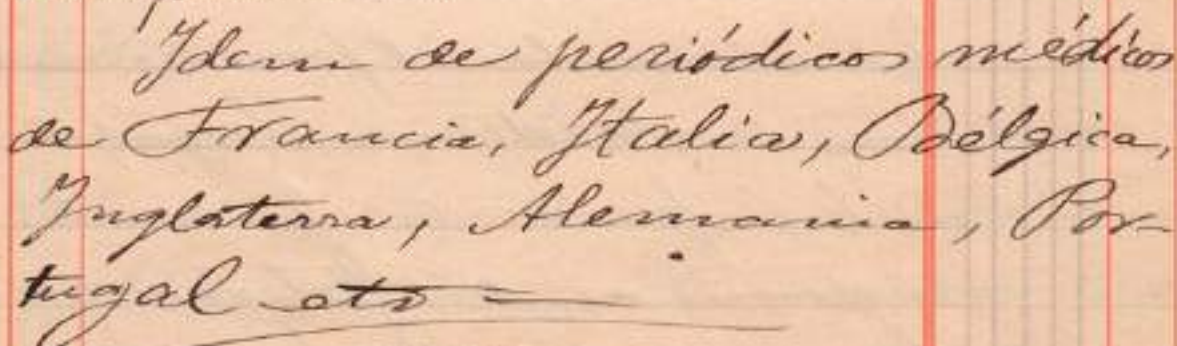 Idem de periódicos médicos
de Francia, Italia, Bélgica,
Inglaterra, Alemania, Por-
tugal etc —